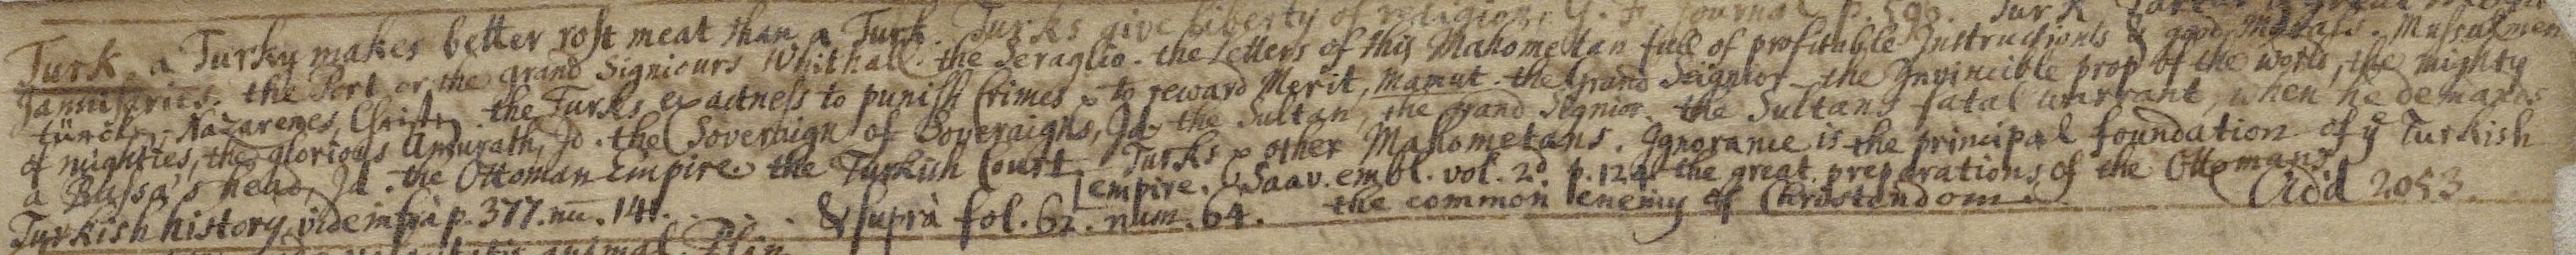 Turk, a Turky makes better rost meat than a Turk. Turks give liberty of religion. G. F. Journal p. 590. Turk
Jannisaries. the Port or the grand Signiours Whithall. the Seraglio. the Letters of this Mahometan full of profitable Instructions & good Morals. Mussulmen
türck. Nazarenes, Christ the Turks exactness to punish Crimes & to reward Merit, Mamut. the Grand Seignior the Invincible prop of the world, the mighty
of mighties, the glorious Amurath, Jd. the Soveraign of Soveraigns, Jd. the Sultan, the grand Signior. the Sultans fatal warrant, when he demands
a Bassa's head, Jd. the Ottoman Empire. the Turkish Court. Turks & other Mahometans. Ignorance is the principal foundation of ye Turkish
[empire. Saav. embl. vol. 2d p. 124 the great preparations of the Ottomans
Turkish history, vide infrà p. 377. nu. 141. . . . & suprà fol. 62. num. 64. the common enemy of Christendom. Add 2053.
animal. Plin